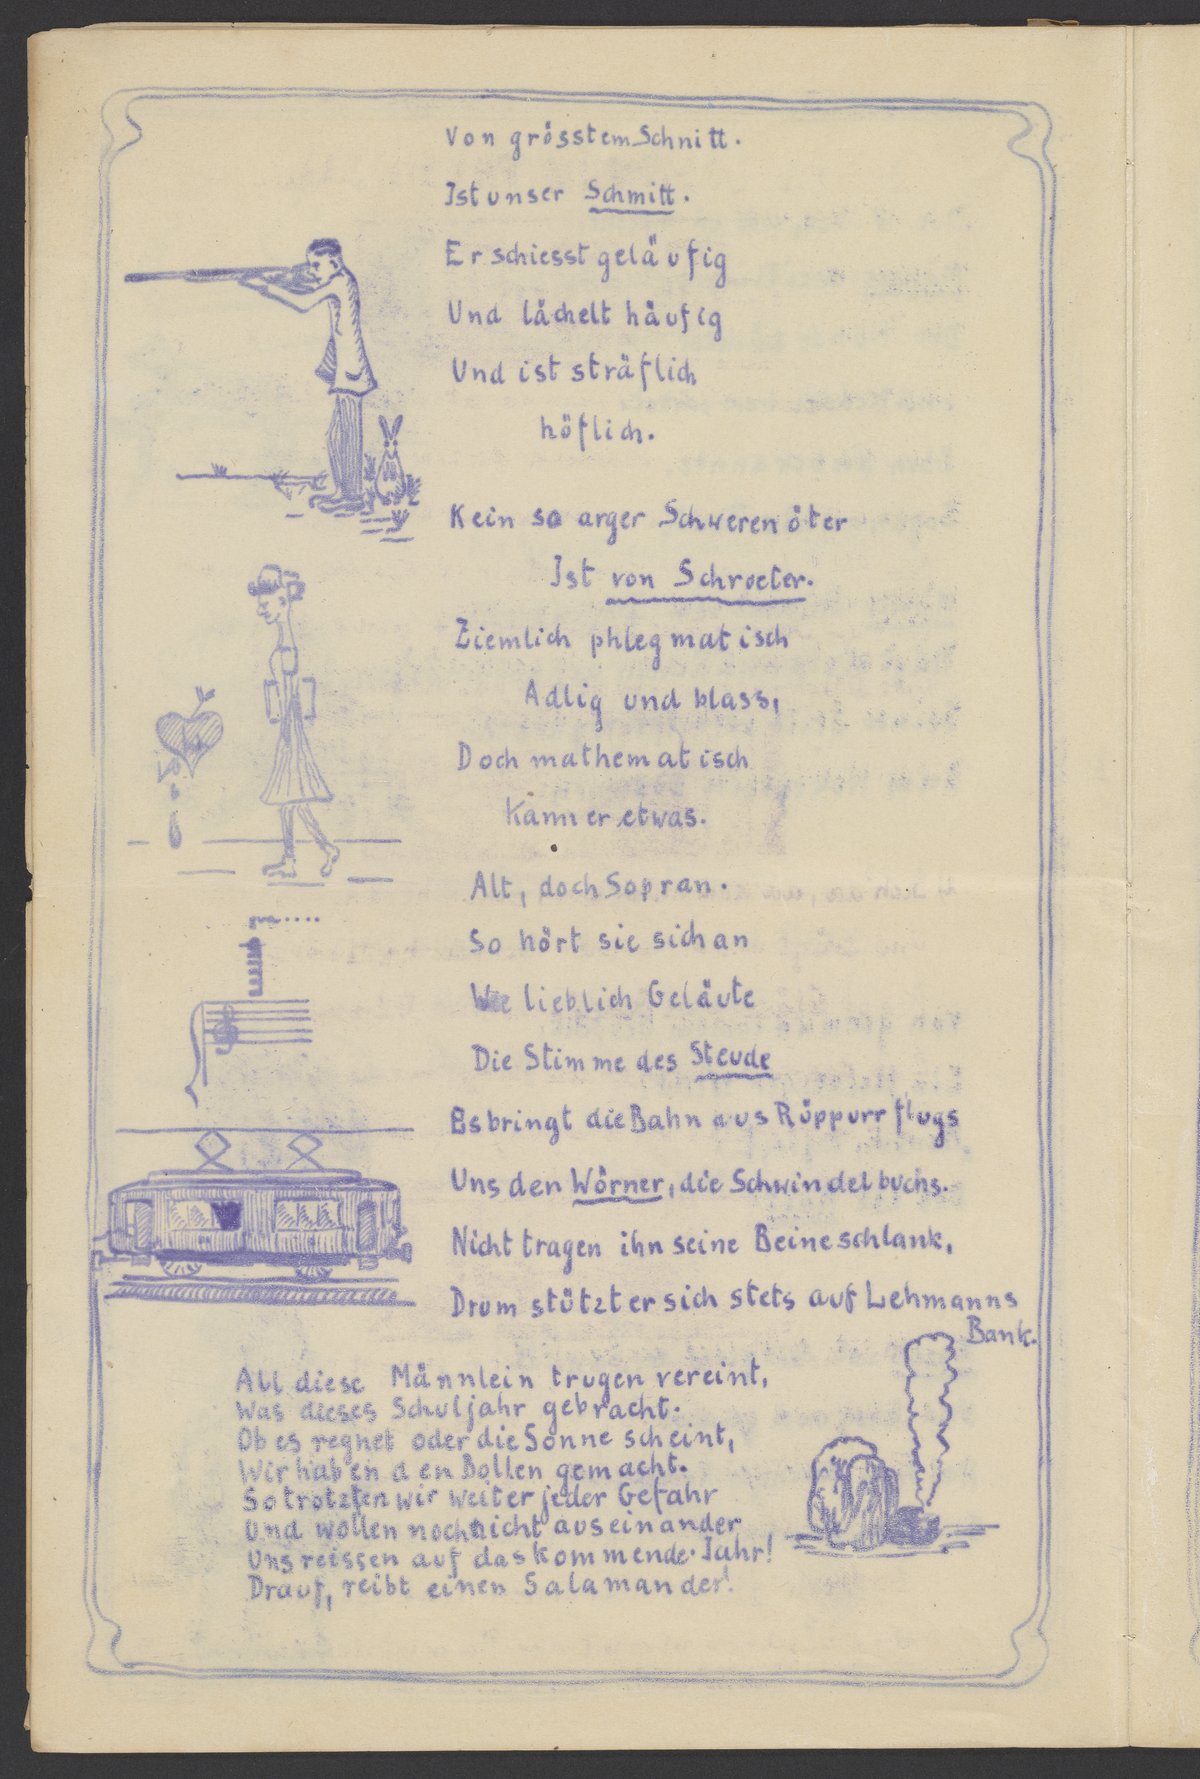 Von grösstem Schnitt.
Ist unser Schmitt.
Er schiesst geläufig
Und lächelt häufig
Und ist sträflich
höflich.
Kein so arger Schwerenöter
Ist von Schroeter.
Ziemlich phlegmatisch
Adlig und blass,
Doch mathematisch
Kann er etwas.
Alt, doch Sopran.
So hört sie sich an
Wie lieblich Geläute
Die Stimme des Steude
Es bringt die Bahn aus Rüppurr flugs
Uns den Wörner, die Schwindelbuchs.
Nicht tragen ihn seine Beine schlank,
Drum stützt er sich stets auf Lehmanns
Bank.
All diese Männlein trugen vereint,
Was dieses Schuljahr gebracht.
Ob es regnet oder die Sonne scheint,
Wir haben den Bollen gemacht.
So trotzten wir weiter jeder Gefahr
Und wollen noch nicht auseinander
Uns reissen auf das kommende Jahr!
Drauf, reibt einen Salamander!